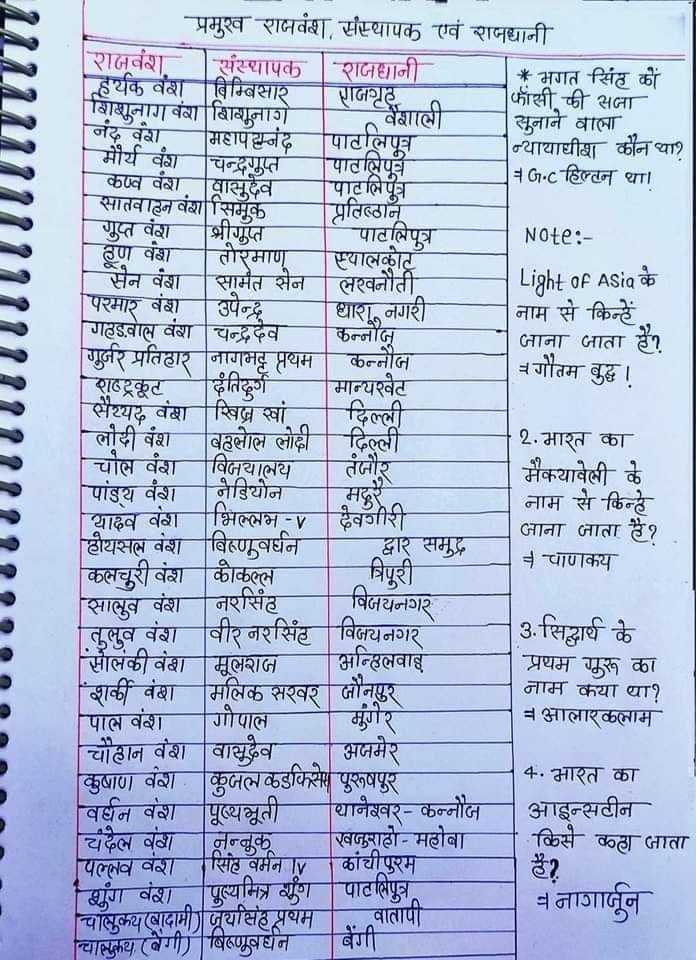 प्रमुख राजवंश, संस्थापक एवं राजधानी
राजवंश संस्थापक राजधानी
हर्यक वंश बिम्बिसार राजगृह
शिशुनाग वंश शिशुनाग वैशाली
नंद वंश महापद्मनंद पाटलिपुत्र
मौर्य वंश चन्द्रगुप्त पाटलिपुत्र
कण्व वंश वासुदेव पाटलिपुत्र
सातवाहन वंश सिमुक प्रतिष्ठान
गुप्त वंश श्रीगुप्त पाटलिपुत्र
हूण वंश तोरमाण स्यालकोट
सेन वंश सामंत सेन लखनौती
परमार वंश उपेन्द्र धारा नगरी
गहडवाल वंश चन्द्रदेव कन्नौज
गुर्जर प्रतिहार नागभट्ट प्रथम कन्नौज
राष्ट्रकूट दंतिदुर्ग मान्यखेट
सैय्यद वंश खिज्र खां दिल्ली
लोदी वंश बहलोल लोदी दिल्ली
चोल वंश विजयालय तंजौर
पांड्य वंश नेडियोन मदुरै
यादव वंश भिल्लभ -v देवगीरी
होयसल वंश विष्णुवर्धन द्वार समुद्र
कलचुरी वंश कोकल्ल त्रिपुरी
सालुव वंश नरसिंह विजयनगर
तुलुव वंश वीर नरसिंह विजयनगर
सोलंकी वंश मूलराज अन्हिलवाड़
शर्की वंश मलिक सरवर जौनपुर
पाल वंश गोपाल मुंगेर
चौहान वंश वासुदेव अजमेर
कुषाण वंश कुजुल कडफिसेस पुरूषपुर
वर्धन वंश पूष्यभूती थानेश्वर - कन्नौज
चंदेल वंश नन्नुक खजुराहो - महोबा
पल्लव वंश सिंह वर्मन IV कांचीपुरम
शुंग वंश पुष्यमित्र शुंग पाटलिपुत्र
चालुक्य (बादामी) जयसिंह प्रथम वातापी
चालुक्य (बेंगी) विष्णुवर्धन बेंगी
* भगत सिंह को
फाँसी की सजा
सुनाने वाला
न्यायाधीश कौन था?
⇒ G.C हिल्टन था।
Note:-
Light of Asia के
नाम से किन्हें
जाना जाता है?
⇒ गौतम बुद्ध।
2. भारत का
मैक्यावेली के
नाम से किन्हे
जाना जाता है?
⇒ चाणक्य
3. सिद्धार्थ के
प्रथम गुरू का
नाम क्या था?
⇒ आलारकलाम
4. भारत का
आइन्सटीन
किसे कहा जाता
है?
⇒ नागार्जुन